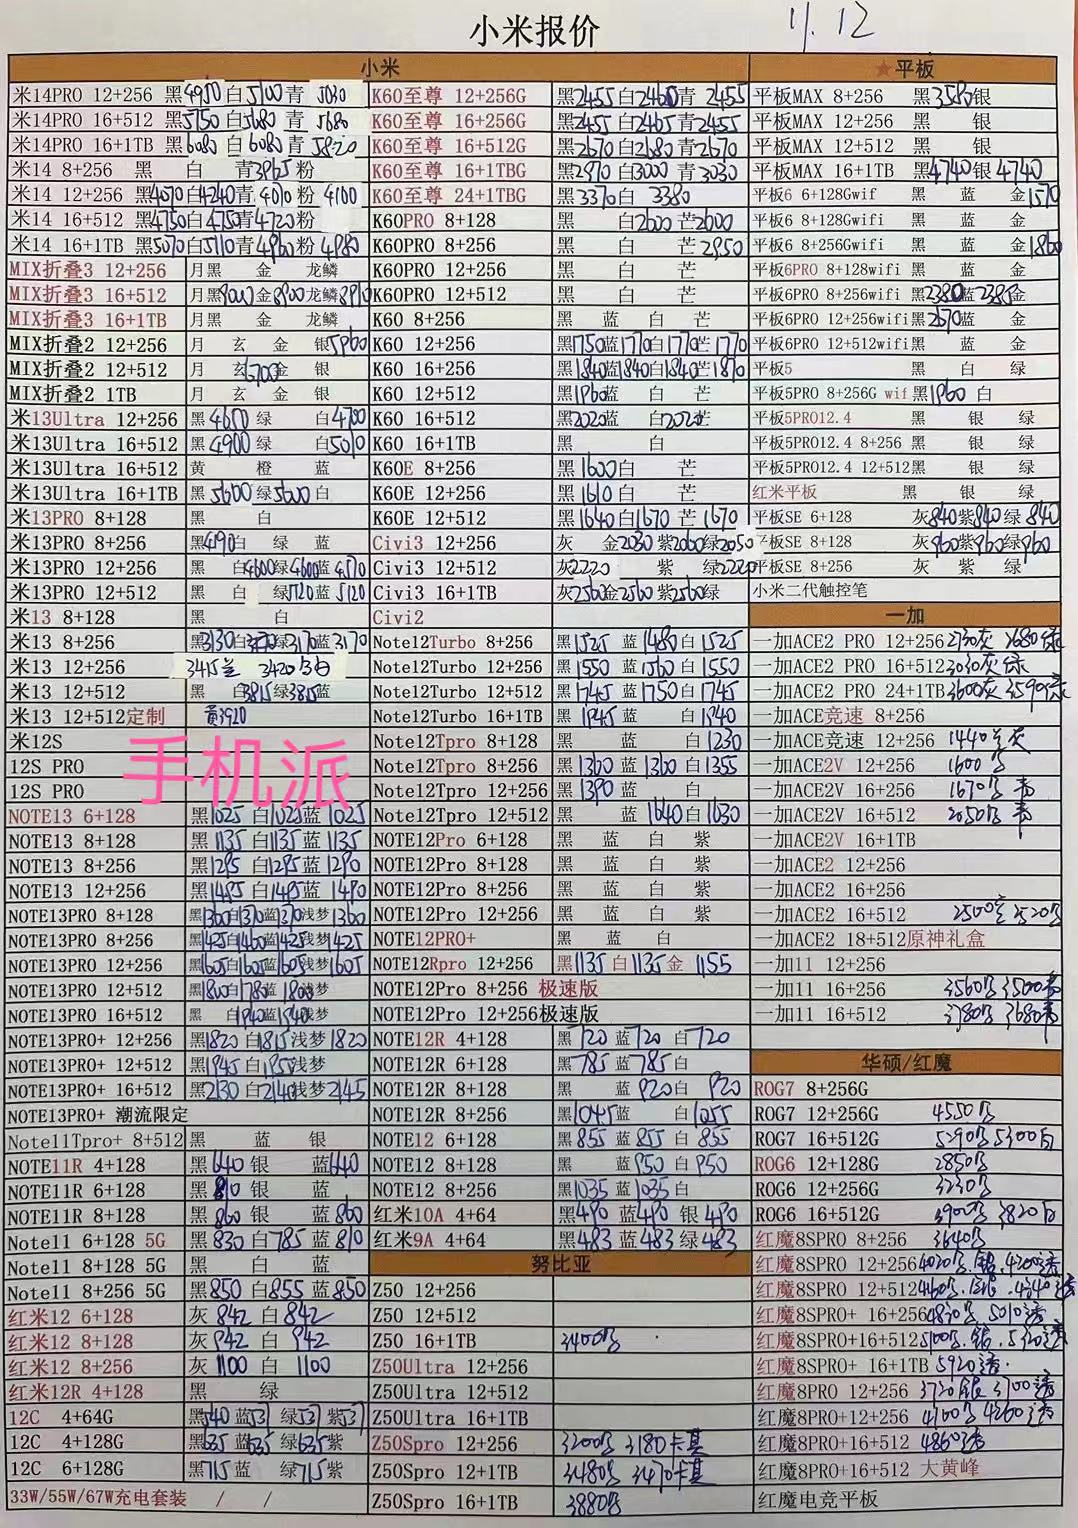 小米报价 11.12
小米
米14PRO 12+256 黑4950白5100青 5030
米14PRO 16+512 黑5750白5680青 5680
米14PRO 16+1TB 黑6080白6080青 5820
米14 8+256 黑 白 青3965粉
米14 12+256 黑4070白4240青4010粉 4100
米14 16+512 黑4750白4750青4720粉
米14 16+1TB 黑5070白5110青4960粉 4980
MIX折叠3 12+256 月黑 金 龙鳞
MIX折叠3 16+512 月黑9000金8900龙鳞8910
MIX折叠3 16+1TB 月黑 金 龙鳞
MIX折叠2 12+256 月 玄 金 银5960
MIX折叠2 12+512 月 玄6700金 银
MIX折叠2 1TB 月 玄 金 银
米13Ultra 12+256 黑4650绿 白4700
米13Ultra 16+512 黑4900绿 白5010
米13Ultra 16+512 黄 橙 蓝
米13Ultra 16+1TB 黑5600绿5600白
米13PRO 8+128 黑 白
米13PRO 8+256 黑4190白 绿 蓝
米13PRO 12+256 黑 白4600绿4600蓝4570
米13PRO 12+512 黑 白 绿5120蓝5120
米13 8+128 黑 白
米13 8+256 黑3130白 绿3170蓝3170
米13 12+256 3415兰 3420
米13 12+512 黑 白3815绿3815蓝
米13 12+512定制 黄3920
米12S
12S PRO
12S PRO
手机派
NOTE13 6+128 黑1025白1025蓝1025
NOTE13 8+128 黑1135白1135蓝1135
NOTE13 8+256 黑1285白1285蓝1290
NOTE13 12+256 黑1485白1485蓝1490
NOTE13PRO 8+128 黑1360白1370蓝1370浅梦1360
NOTE13PRO 8+256 黑1425白1460蓝1425浅梦1425
NOTE13PRO 12+256 黑1605白1605蓝1605浅梦1605
NOTE13PRO 12+512 黑1800白1780蓝1800浅梦
NOTE13PRO 16+512 黑 白1940蓝1940浅梦
NOTE13PRO+ 12+256 黑1820白1815浅梦1820
NOTE13PRO+ 12+512 黑1945白1955浅梦
NOTE13PRO+ 16+512 黑2130白2140浅梦2145
NOTE13PRO+ 潮流限定
Note11Tpro+ 8+512 黑 蓝 银
NOTE11R 4+128 黑640银 蓝640
NOTE11R 6+128 黑810银 蓝
NOTE11R 8+128 黑860银 蓝860
Note11 6+128 5G 黑830白785蓝810
Note11 8+128 5G 黑 白 蓝
Note11 8+256 5G 黑850白855蓝850
红米12 6+128 灰842白842
红米12 8+128 灰942白942
红米12 8+256 灰1100白1100
红米12R 4+128 黑 绿
12C 4+64G 黑540蓝531绿531紫531
12C 4+128G 黑635蓝635绿635紫
12C 6+128G 黑715蓝 绿715紫
33W/55W/67W充电套装 / /
K60至尊 12+256G 黑2455白2465青2455
K60至尊 16+256G 黑2455白2465青2455
K60至尊 16+512G 黑2670白2680青2670
K60至尊 16+1TBG 黑2970白3000青3030
K60至尊 24+1TBG 黑3370白 3380
K60PRO 8+128 黑 白2600芒2600
K60PRO 8+256 黑 白 芒2950
K60PRO 12+256 黑 白 芒
K60PRO 12+512 黑 白 芒
K60 8+256 黑 蓝 白 芒
K60 12+256 黑1750蓝1770白1770芒1770
K60 16+256 黑1840蓝1840白1840芒1870
K60 12+512 黑1960蓝 白 芒
K60 16+512 黑2020蓝 白2020芒
K60 16+1TB 黑 白
K60E 8+256 黑1600白 芒
K60E 12+256 黑1610白 芒
K60E 12+512 黑1640白1670芒1670
Civi3 12+256 灰 金2030紫2060绿2050
Civi3 12+512 灰2220 紫 绿2220
Civi3 16+1TB 灰2560金2560紫2560绿
Civi2
Note12Turbo 8+256 黑1525蓝1480白1525
Note12Turbo 12+256 黑1550蓝1560白1550
Note12Turbo 12+512 黑1745蓝1750白1745
Note12Turbo 16+1TB 黑1945蓝 白1940
Note12Tpro 8+128 黑 蓝 白1230
Note12Tpro 8+256 黑1360蓝1360白1355
Note12Tpro 12+256 黑1390蓝 白
Note12Tpro 12+512 黑 蓝1640白1630
NOTE12Pro 6+128 黑 蓝 白 紫
NOTE12Pro 8+128 黑 蓝 白 紫
NOTE12Pro 8+256 黑 蓝 白 紫
NOTE12Pro 12+256 黑 蓝 白 紫
NOTE12PRO+ 黑 蓝 白
NOTE12Rpro 12+256 黑1135白1135金 1155
NOTE12Pro 8+256 极速版
NOTE12Pro 12+256极速版
NOTE12R 4+128 黑720蓝720白720
NOTE12R 6+128 黑785蓝785白
NOTE12R 8+128 黑 蓝920白920
NOTE12R 8+256 黑1045蓝 白1055
NOTE12 6+128 黑855蓝855白855
NOTE12 8+128 黑 蓝950白950
NOTE12 8+256 黑1035蓝1035白
红米10A 4+64 黑490蓝490银490
红米9A 4+64 黑483蓝483绿483
努比亚
Z50 12+256
Z50 12+512
Z50 16+1TB 3400
Z50Ultra 12+256
Z50Ultra 12+512
Z50Ultra 16+1TB
Z50Spro 12+256 3200 3180卡其
Z50Spro 12+1TB 3480 3470卡其
Z50Spro 16+1TB 3880
★平板
平板MAX 8+256 黑3580银
平板MAX 12+256 黑 银
平板MAX 12+512 黑 银
平板MAX 16+1TB 黑4740银4740
平板6 6+128Gwif 黑 蓝 金1570
平板6 8+128Gwifi 黑 蓝 金
平板6 8+256Gwifi 黑 蓝 金1860
平板6PRO 8+128wifi 黑 蓝 金
平板6PRO 8+256wifi 黑2380蓝2385金
平板6PRO 12+256wifi 黑2670蓝 金
平板6PRO 12+512wifi 黑 蓝 金
平板5 黑 白 绿
平板5PRO 8+256G wif 黑1960白
平板5PRO12.4 黑 银 绿
平板5PRO12.4 8+256 黑 银 绿
平板5PRO12.4 12+512 黑 银 绿
红米平板 黑 银 绿
平板SE 6+128 灰840紫840绿840
平板SE 8+128 灰960紫960绿960
平板SE 8+256 灰 紫 绿
小米二代触控笔
一加
一加ACE2 PRO 12+256 2730灰 2680绿
一加ACE2 PRO 16+512 3030灰绿
一加ACE2 PRO 24+1TB 3600灰 3590绿
一加ACE竞速 8+256
一加ACE竞速 12+256 1440兰灰
一加ACE2V 12+256 1600
一加ACE2V 16+256 1670
一加ACE2V 16+512 2050
一加ACE2V 16+1TB
一加ACE2 12+256
一加ACE2 16+256
一加ACE2 16+512 2500 2520
一加ACE2 18+512原神礼盒
一加11 12+256
一加11 16+256 3560 3500
一加11 16+512 3780 3680
华硕/红魔
ROG7 8+256G
ROG7 12+256G 4550
ROG7 16+512G 5290 5300白
ROG6 12+128G 2850
ROG6 12+256G 3230
ROG6 16+512G 3900 3820白
红魔8SPRO 8+256 3640
红魔8SPRO 12+256 4020.银.4200透
红魔8SPRO 12+512 4460.银.4540透
红魔8SPRO+ 16+256 4830 5010透
红魔8SPRO+16+512 5100.银.5320透
红魔8SPRO+ 16+1TB 5920透
红魔8PRO 12+256 3720银 3700透
红魔8PRO+12+256 4100 4260透
红魔8PRO+16+512 4860透
红魔8PRO+16+512 大黄峰
红魔电竞平板